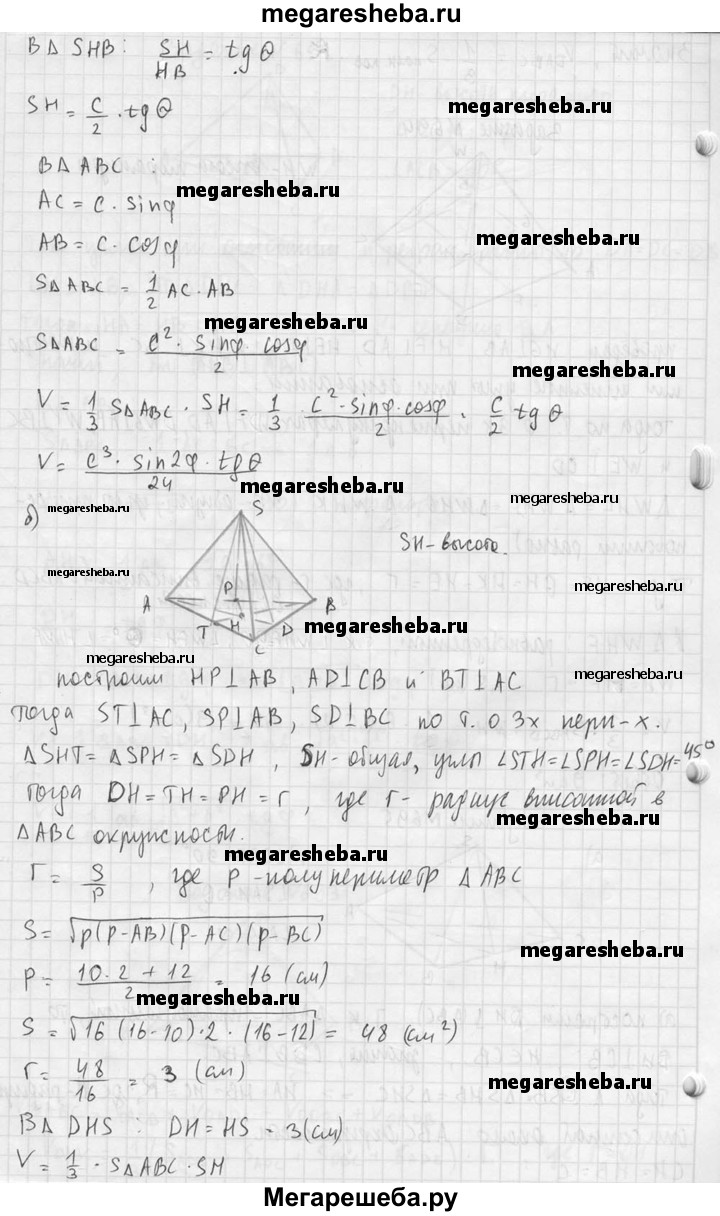 megaresheba.ru
В Δ SHB: SH/HB = tg θ
SH = c/2 · tg θ
megaresheba.ru
В Δ ABC :
megaresheba.ru
AC = c · sinφ
AB = c · cosφ
megaresheba.ru
SΔABC = 1/2 AC · AB
megaresheba.ru
SΔABC = c² · sinφ · cosφ / 2
megaresheba.ru
V = 1/3 SΔABC · SH = 1/3 · c² · sinφ · cosφ / 2 · c/2 tg θ
V = c³ · sin2φ · tgθ / 24
megaresheba.ru
megaresheba.ru
б) megaresheba.ru
S
SH - высота.
megaresheba.ru
megaresheba.ru
A P B
T H D
C
megaresheba.ru
megaresheba.ru
построим HP⊥AB, AD⊥CB и BT⊥AC
тогда ST⊥AC, SP⊥AB, SD⊥BC по т. о 3х пери-х.
ΔSHT = ΔSPH = ΔSDH, SH-общая, углы ∠STH=∠SPH=∠SDH=45°
тогда DH = TH = PH = r, где r - радиус вписанной в
megaresheba.ru
ΔABC окружности.
megaresheba.ru
r = S/p, где p - полупериметр ΔABC
S = √p(p-AB)(p-AC)(p-BC)
megaresheba.ru
p = 10·2 + 12 / 2 = 16 (см)
megaresheba.ru
S = √16 (16-10)·2 · (16-12) = 48 (см²)
r = 48/16 = 3 (см)
megaresheba.ru
В Δ DHS : DH = HS = 3(см)
V = 1/3 · SΔABC · SH
Мегарешеба.ру